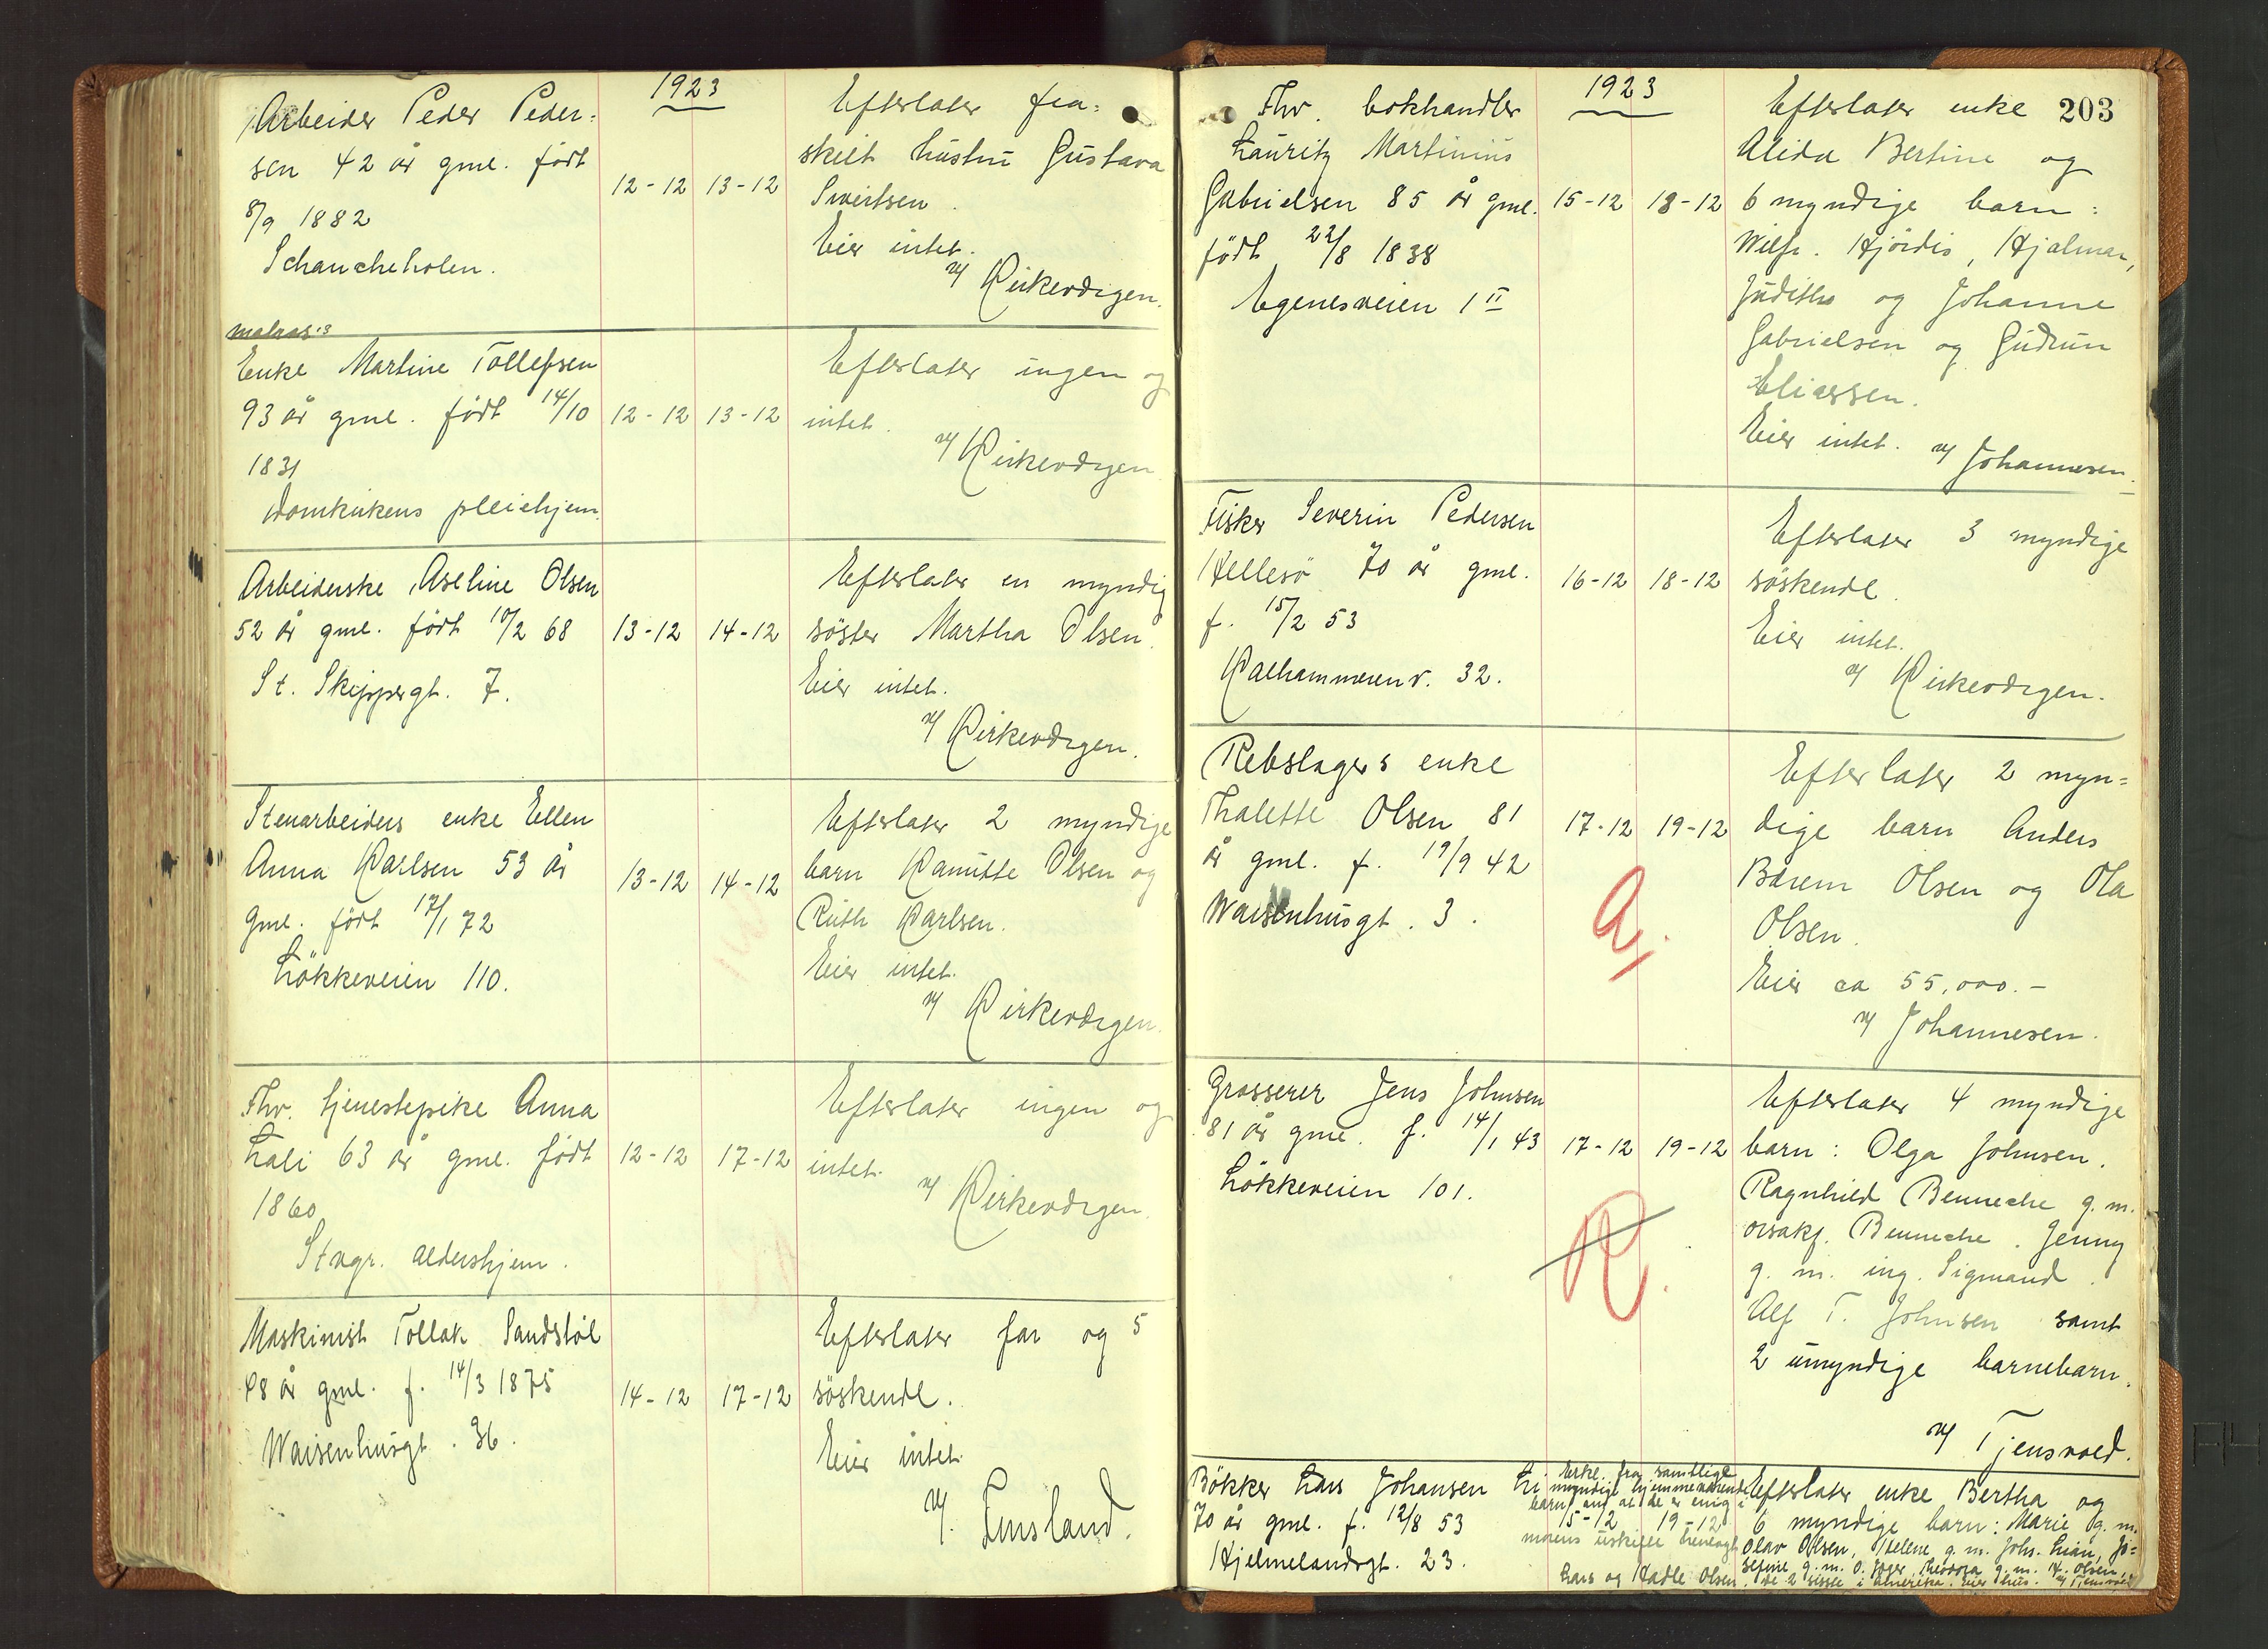 1923
Arbeider Peder Peder=
sen 42 år gml. født
8/9 1882
Schancheholen.
12-12 13-12
Efterlater fra=
skilt hustru Gustava
Sivertsen.
Eier intet.
v/ Kirkevergen.
Enke Martine Tollefsen
93 år gml. født 14/10
1831
Domkirkens pleiehjem.
12-12 13-12
Efterlater ingen og
intet.
v/ Kirkevergen
Arbeiderske Aseline Olsen
52 år gml. født 10/2 68
St. Skippergt. 7.
13-12 14-12
Efterlater en myndig
søster Martha Olsen.
Eier intet.
v/ Kirkevergen.
Stenarbeiders enke Ellen
Anna Karlsen 53 år
gml. født 17/1 72
Løkkeveien 110.
13-12 14-12
Efterlater 2 myndige
barn Kamitte Olsen og
Ruth Karlsen.
Eier intet.
v/ Kirkevergen.
Fhv. tjenestepike Anna
Lali 63 år gml. født
1860
Stvgr. aldershjem.
12-12 17-12
Efterlater ingen og
intet.
v/ Kirkevergen.
Maskinist Tollak Sandstøl
48 år gml. f. 14/3 1875
Waisenhusgt. 36.
14-12 17-12
Efterlater far og 5
søskende.
Eier intet.
v/ Emsland.
203
1923
Fhv. bokhandler
Lauritz Martinius
Gabrielsen 85 år gml.
født 22/8 1838
Egenesveien 1 II
15-12 18-12
Efterlater enke
Alida Bertine og
6 myndige barn:
Wilh. Hjørdis, Hjalmar,
Judith og Johanne
Gabrielsen og Gudrun
Eliassen.
Eier intet. v/ Johannesen.
Fisker Severin Pedersen
Hellesø 70 år gml.
f. 15/2 53
Kalhammerenv. 32.
16-12 18-12
Efterlater 3 myndige
søskende.
Eier intet.
v/ Kirkevergen.
Rebslagers enke
Thalette Olsen 81
år gml. f. 19/9 42
Waisenhusgt. 3.
17-12 19-12
A.
Efterlater 2 myn=
dige barn Anders
Bærem Olsen og Ola
Olsen.
Eier ca 55,000.-
v/ Johannesen.
Grosserer Jens Johnsen
81 år gml. f. 14/1 43
Løkkeveien 101.
17-12 19-12
R.
Efterlater 4 myndige
barn: Olga Johnsen,
Ragnhild Benneche g.m.
orsakf. Benneche. Jenny
g. m. ing. Sigmand.
Alf T. Johnsen samt
2 umyndige barnebarn.
v/ Tjensvold.
Bøkker Lars Johansen Li
70 år gml. f. 12/8 53
Hjelmelandsgt. 23.
Erkl. fra samtlige
myndige hjemmeværende
barn om at de er enig i
15-12 19-12
morens uskifte henlagt
Lars og Hadle Olsen.
Efterlater enke Bertha og
6 myndige barn: Marie g.m.
Olav Olsen, Helene g.m. Johs. Lian, Jo=
sefine g.m. O. Theodora g.m. Olsen,
de 2 sisste i Amerika. Eier hus. v/ Tjensvold